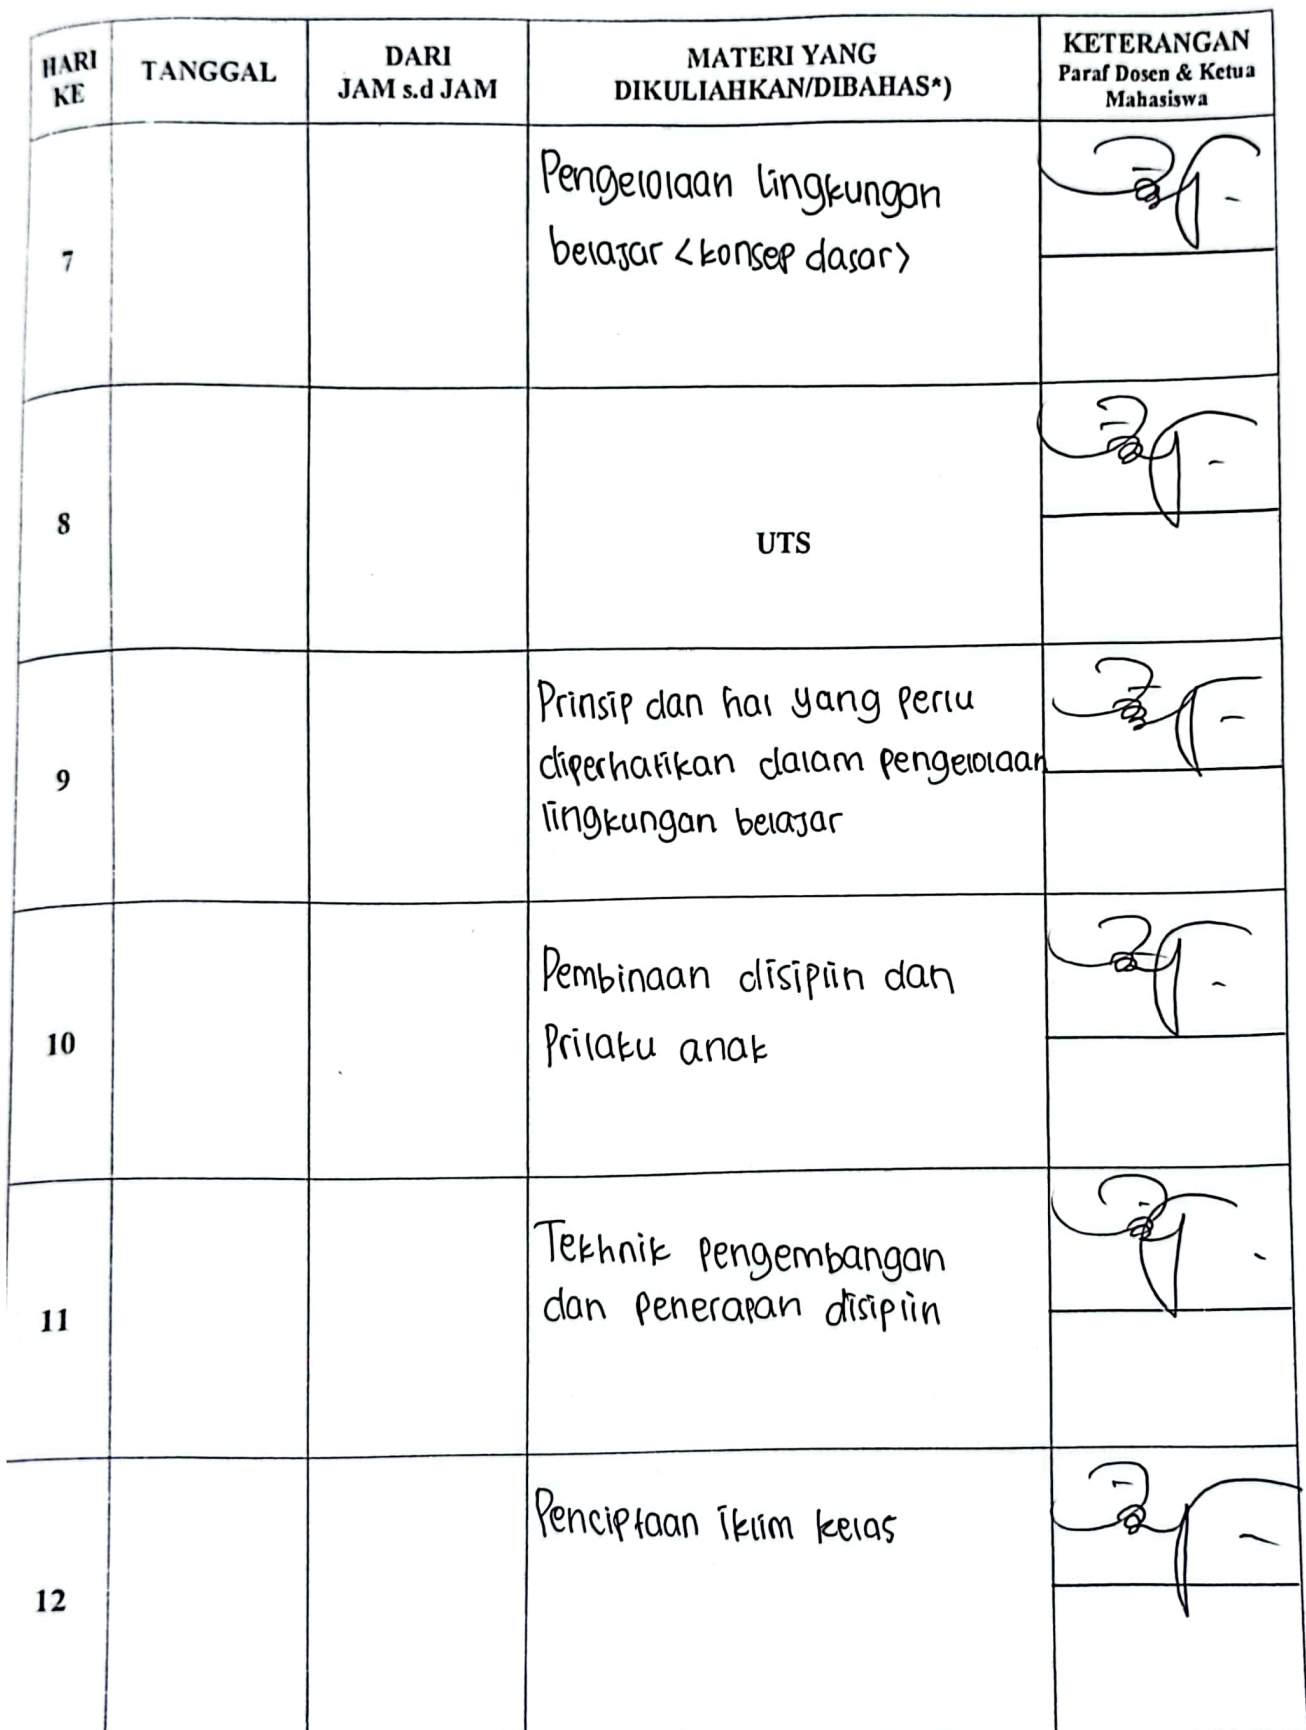 HARI KE
TANGGAL
DARI
JAM s.d JAM
MATERI YANG
DIKULIAHKAN/DIBAHAS*)
KETERANGAN
Paraf Dosen & Ketua
Mahasiswa
7
Pengelolaan lingkungan
belajar <konsep dasar>
8
UTS
9
Prinsip dan hal yang perlu
diperhatikan dalam pengelolaan
lingkungan belajar
10
Pembinaan disiplin dan
Prilaku anak
11
Tekhnik pengembangan
dan penerapan disiplin
12
Penciptaan iklim kelas